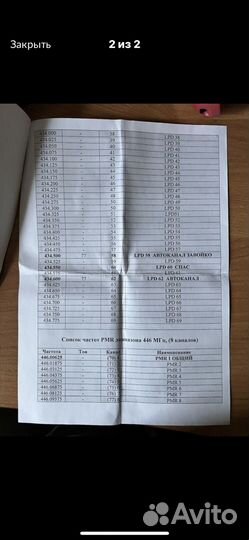 Закрыть
2 из 2
434.000 - 38 LPD 38
434.025 - 39 LPD 39
434.050 - 40 LPD 40
434.075 - 41 LPD 41
434.100 - 42 LPD 42
434.125 - 43 LPD 43
434.150 - 44 LPD 44
434.175 - 45 LPD 45
434.200 - 46 LPD 46
434.225 - 47 LPD 47
434.250 - 48 LPD 48
434.275 - 49 LPD 49
434.300 - 50 LPD 50
434.325 - 51 LPD51
434.350 - 52 LPD 52
434.375 - 53 LPD 53
434.400 - 54 LPD 54
434.425 - 55 LPD 55
434.450 - 56 LPD 56
434.475 - 57 LPD 57
434.500 77 58 LPD 58 АВТОКАНАЛ ЗАВОЙКО
434.525 - 59 LPD 59
434.550 - 60 LPD 60 СПАС
LPD 61
434.600 77 62 LPD-62 АВТОКАНАЛ
434.625 - 63 LPD 63
434.650 - 64 LPD 64
434.675 - 65 LPD 65
434.700 - 66 LPD 66
434.725 - 67 LPD 67
434.750 - 68 LPD 68
434.775 - 69 LPD 69
Список частот PMR диапазона 446 МГц, (8 каналов)
Частота Тон Канал Наименование
446.00625 - (70) PMR 1 ОБЩИЙ
446.01875 - PMR 2
446.03125 - PMR 3
446.04375 - PMR 4
446.05625 - PMR 5
446.06875 - PMR 6
446.08125 - PMR 7
446.09375 - (77) PMR 8
Avito